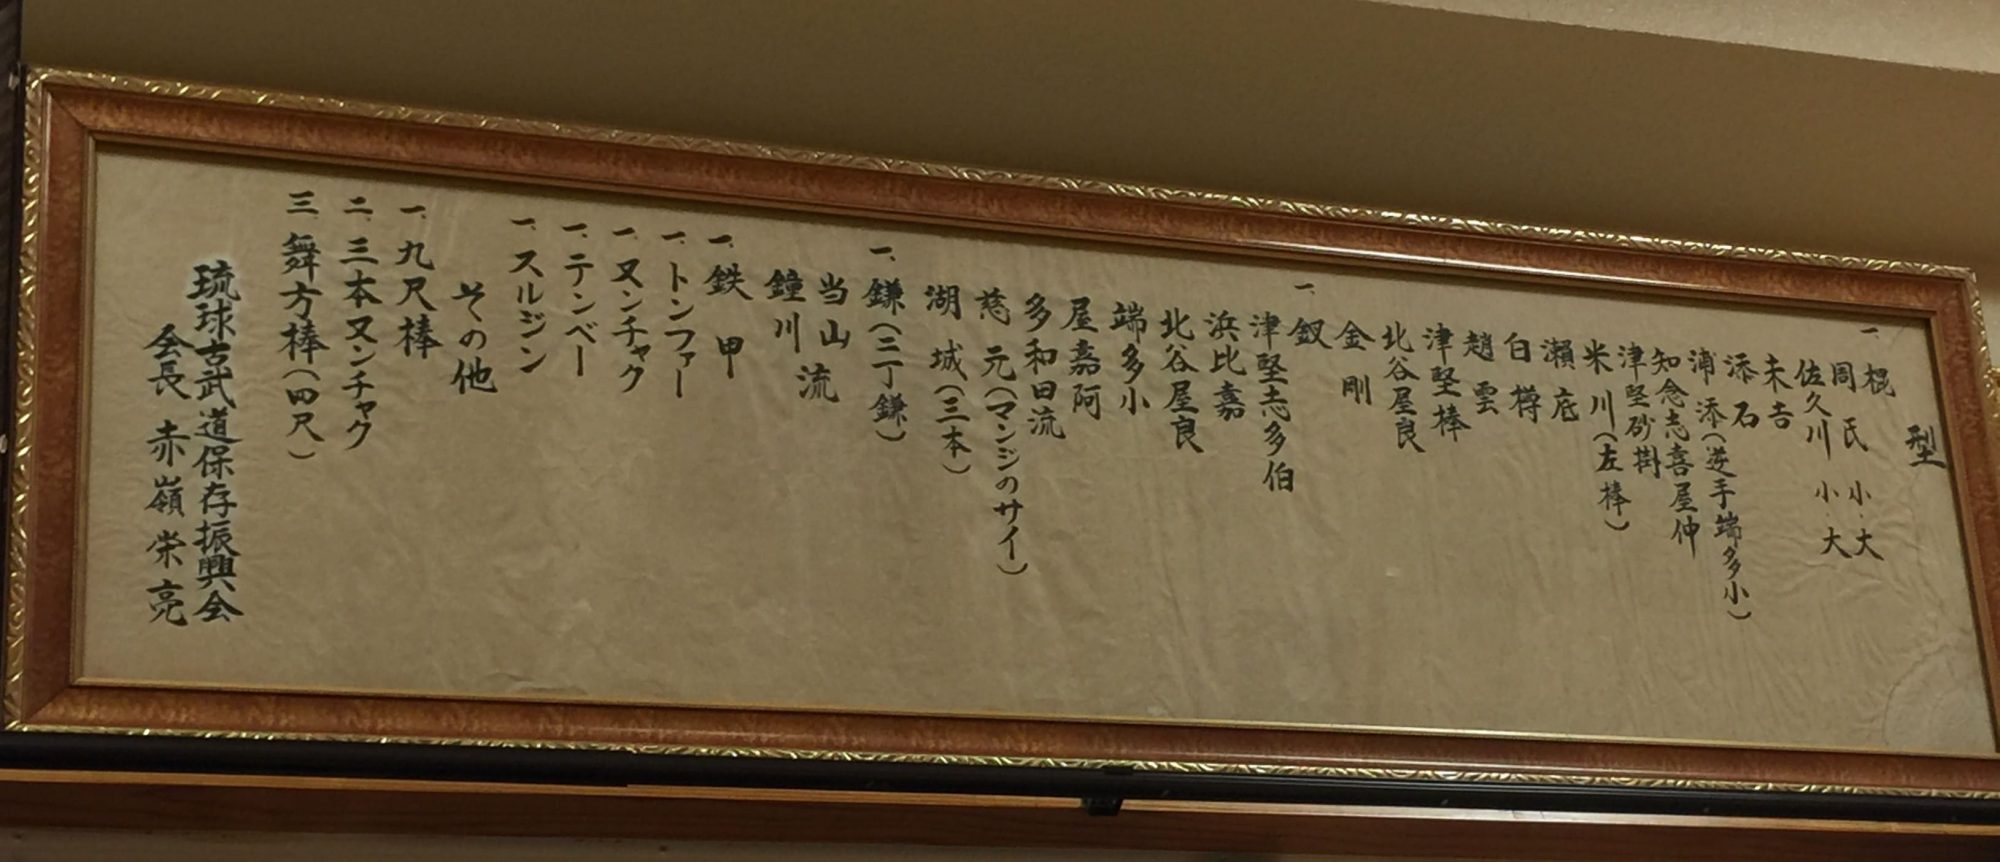 型
一、棍
周氏 小・大
佐久川 小・大
末吉
添石
浦添(逆手端多小)
知念志喜屋仲
津堅砂掛
米川(左棒)
瀬底
白樽
趙雲
津堅棒
北谷屋良
金剛
一、釵
津堅志多伯
浜比嘉
北谷屋良
端多小
屋嘉阿
多和田流
慈元(マンジのサイ)
湖城(三本)
一、鎌(二丁鎌)
当山流
鐘川
一、鉄甲
一、トンファー
一、ヌンチャク
一、テンベー
一、スルジン
その他
一、九尺棒
二、三本ヌンチャク
三、舞方棒(四尺)
琉球古武道保存振興会
会長 赤嶺栄亮